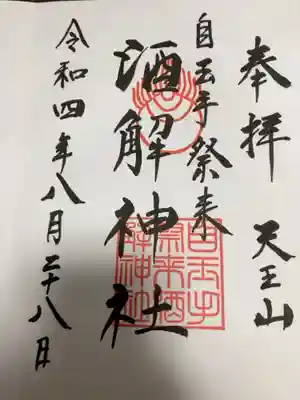 奉拝 天王山
自玉手祭来
酒解神社
令和四年八月二十八日
自玉手
祭来酒
解神社